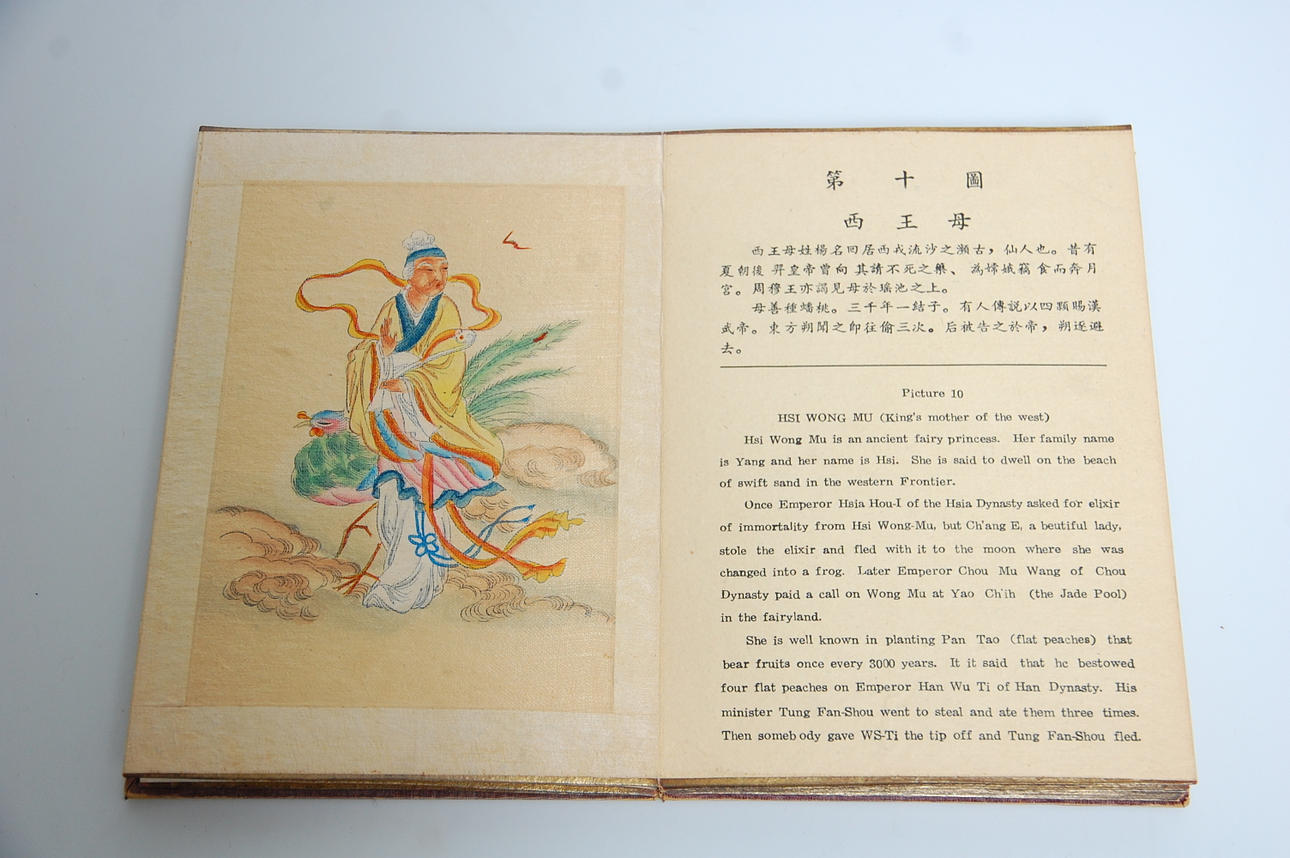 第十圖
西王母
西王母姓楊名回居西戎流沙之瀨古，仙人也。昔有
夏朝後羿皇帝曾向其請不死之藥、為嫦娥竊食而奔月
宮。周穆王亦謁見母於瑤池之上。
母善種蟠桃。三千年一結子。有人傳說以四顆賜漢
武帝。東方朔聞之即往偷三次。后被告之於帝，朔逐避
去。
Picture 10
HSI WONG MU (King's mother of the west)
Hsi Wong Mu is an ancient fairy princess. Her family name
is Yang and her name is Hsi. She is said to dwell on the beach
of swift sand in the western Frontier.
Once Emperor Hsia Hou-I of the Hsia Dynasty asked for elixir
of immortality from Hsi Wong-Mu, but Ch'ang E, a beutiful lady,
stole the elixir and fled with it to the moon where she was
changed into a frog. Later Emperor Chou Mu Wang of Chou
Dynasty paid a call on Wong Mu at Yao Ch'ih (the Jade Pool)
in the fairyland.
She is well known in planting Pan Tao (flat peaches) that
bear fruits once every 3000 years. It it said that he bestowed
four flat peaches on Emperor Han Wu Ti of Han Dynasty. His
minister Tung Fan-Shou went to steal and ate them three times.
Then someb ody gave WS-Ti the tip off and Tung Fan-Shou fled.